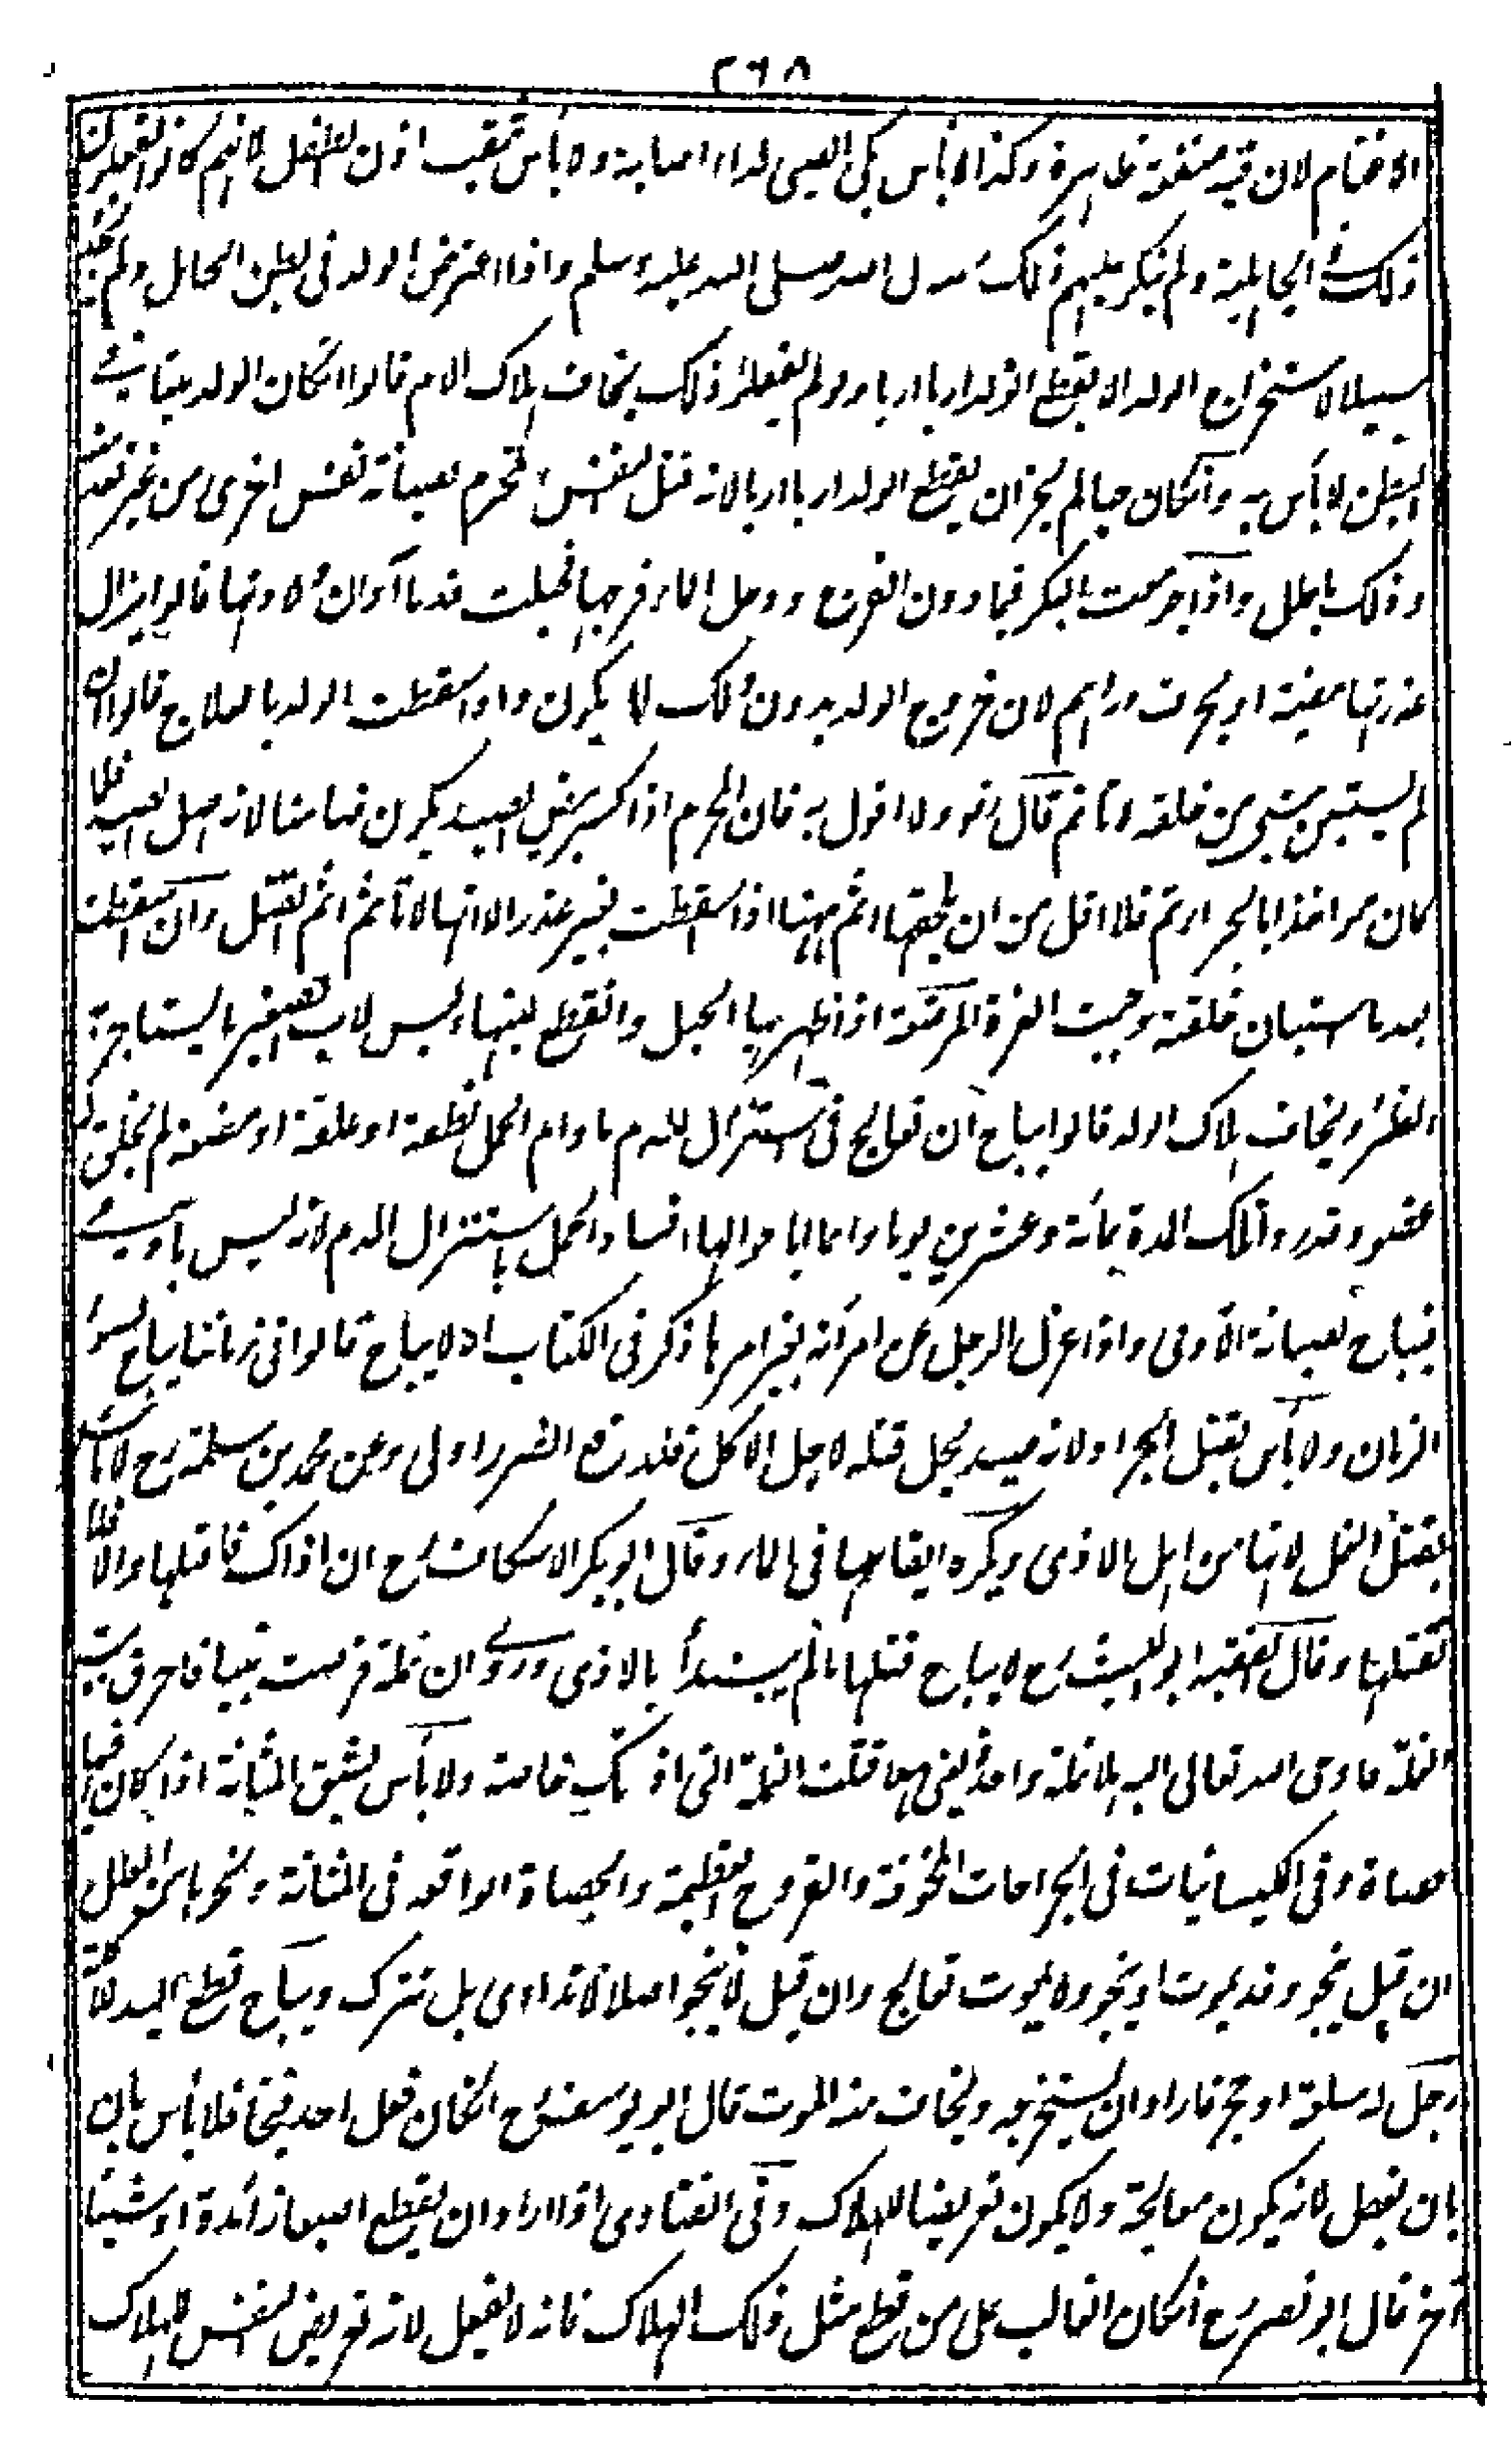 ٢٦٨
الاغنام لان فيه منفعة ظاهرة وكذا لا بأس بكى الصبى لداء اصابه ولا بأس بثقب اذن الطفل لانهم كانوا يفعلون
ذلك فى الجاهلية ولم ينكر عليهم ذلك رسول الله صلى الله عليه وسلم واذا اعترض الولد فى بطن الحامل ولم يجدوا
سبيلا لاستخراج الولد الا بقطع الولد اربا اربا ولو لم يفعلوا ذلك يخاف هلاك الام قالوا انكان الولد ميتا فى
البطن لا بأس به وانكان حيا لم يجز ان يقطع الولد اربا اربا لانه قتل النفس المحرم لصيانة نفس اخرى من غير تعد
وذلك باطل واذا جومعت البكر فيما دون الفرج ودخل الماء فرجها فحبلت فدنا اوان ولادتها قالوا يزال
عذرتها ببيضة او بحرف درهم لان خروج الولد بدون ذلك لا يكون واذا اسقطت الولد بالعلاج قالوا ان
لم يستبن شئ من خلقه لا تأثم قال رضـ ولا اقول به فان المحرم اذا كسر بيض الصيد يكون ضامنا لانه اصل الصيد فلما
كان مواخذا بالجزاء ثم فلا اقل من ان يلحقها اثم ههنا اذا اسقطت بغير عذر الا انها لا تأثم اثم القتل وان اسقطت
بعد ما استبان خلقه وجبت الغرة المرضعة اذا ظهر بها الحبل وانقطع لبنها وليس لاب الصغير ما يستاجر به
الظئر ويخاف هلاك الولد قالوا يباح ان تعالج فى استنزال الدم ما دام الحمل نطفة او علقة او مضغة لم يخلق له
عضو وقدروا تلك المدة بمائة وعشرين يوما وانما اباحوا لها افساد الحمل باستنزال الدم لانه ليس بآدمى
فيباح لصيانة الآدمى واذا عزل الرجل عن امرأته بغير امرها ذكر فى الكتاب انه لا يباح قالوا فى زماننا يباح لسوء
الزمان ولا بأس بقتل الجراد لانه صيد يحل قتله لاجل الاكل فلدفع الضرر اولى وعن محمد بن سلمة رح لا بأس
بقتل النمل لانها من اهل الاذى ويكره القاؤها فى الماء وقال ابو بكر الاسكاف رح ان اذاك فاقتلها والا فلا
تقتلها وقال الفقيه ابو الليث رح لا يباح قتلها ما لم يبتدأ بالاذى وروى ان نملة قرصت نبيا فاحرق بيت
النملة فاوحى الله تعالى اليه هلا نملة واحدة يعنى هلا قتلت النملة التى اذتك خاصة ولا بأس بشق المثانة اذا كان فيها
حصاة وفى الكيسانيات فى الجراحات المخوفة والقروح العظيمة والحصاة الواقعة فى المثانة ونحوها من العلل
ان قيل ينجو وقد يموت او ينجو ولا يموت تعالج وان قيل لا ينجو اصلا لا تداوى بل تترك ويباح قطع اليد للآكلة
رجل له سلعة او حجر فاراد ان يستخرجه ويخاف منه الموت قال ابو يوسف رح انكان فعل احد فنجا فلا بأس بان
بان يفعل لانه يكون معالجة ولا يكون تعريضا للهلاك وفى الفتاوى اذا اراد ان يقطع اصبعا زائدة او شيئا
آخر قال ابو نصر رح انكان الغالب على من قطع مثل ذلك الهلاك فانه لا يفعل لانه تعريض النفس للهلاك